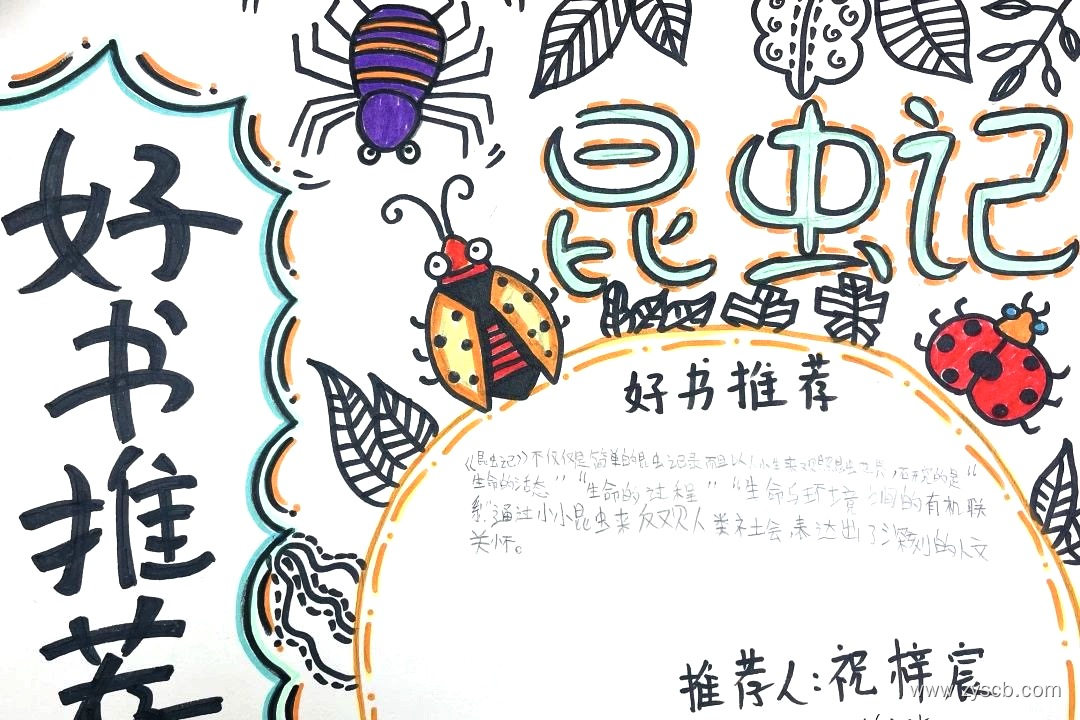 好书推荐
昆虫记
好书推荐
《昆虫记》不仅仅是简单的昆虫记录而且以人
生命的活态”“生命的过程”“生命与环境之间的有机联
系”通过小小昆虫来反观人类社会,表达出了深刻的人文
关怀。
推荐人:祝梓宸
www.zyscb.com